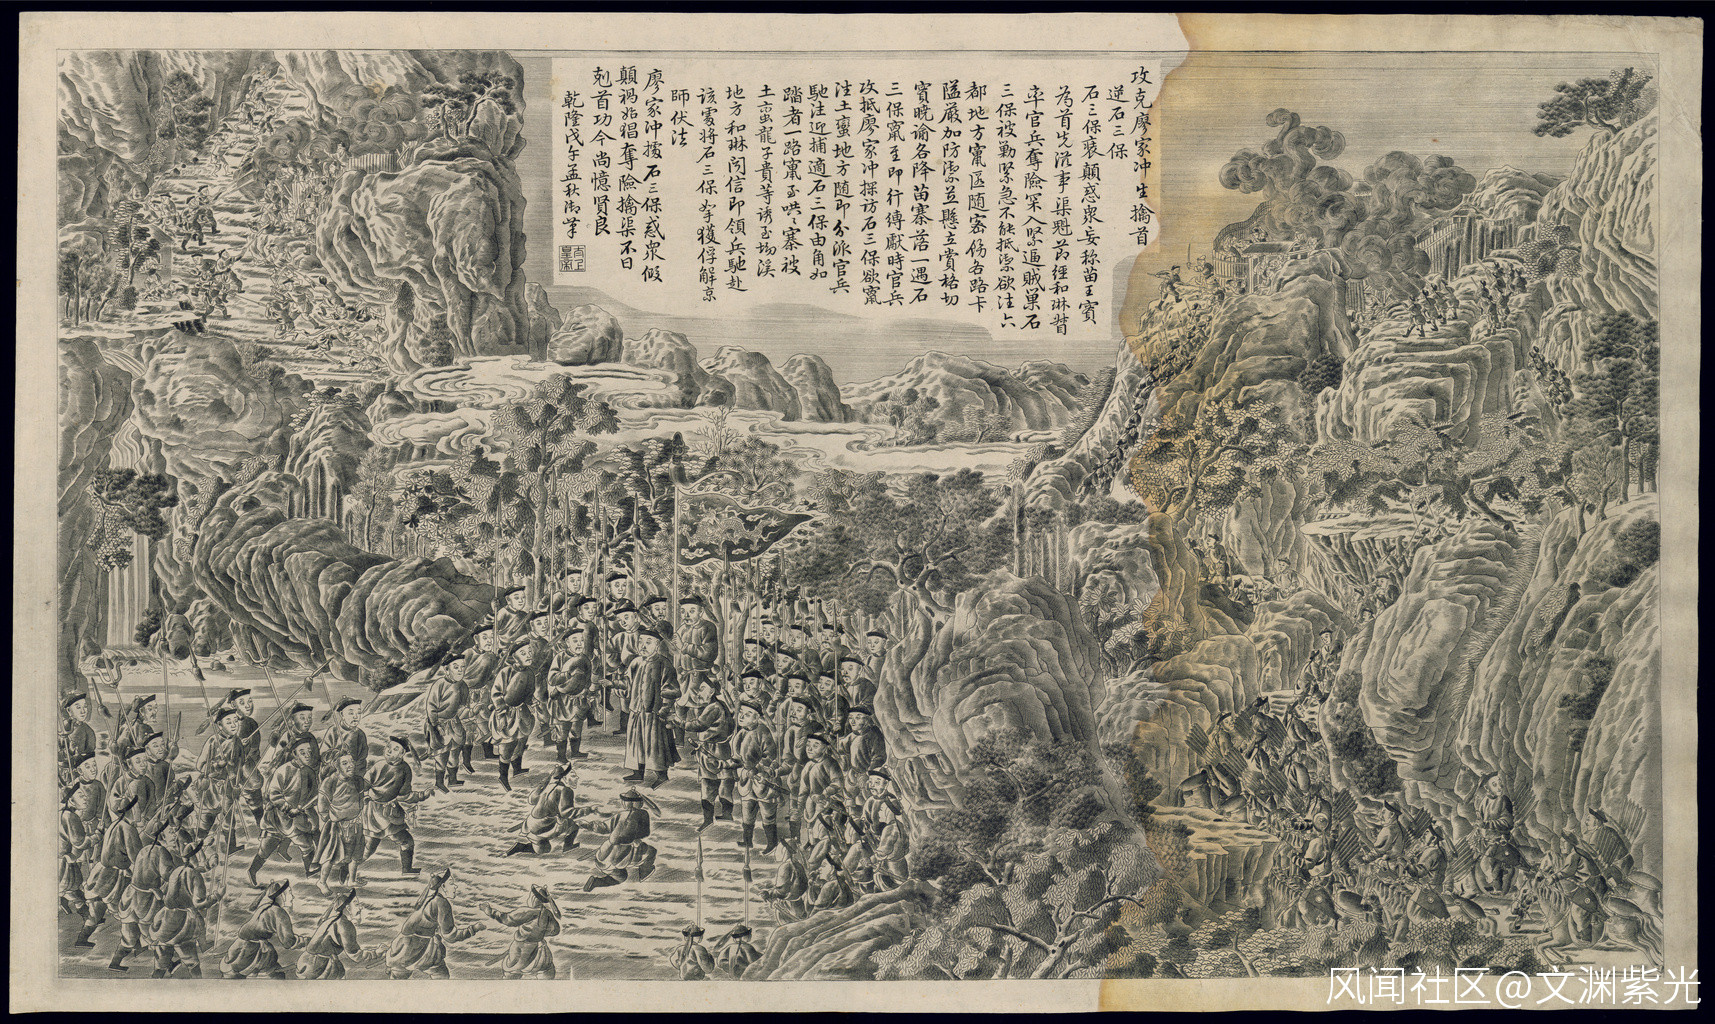 攻克廖家冲生擒首
逆石三保
石三保裝顛惑衆妄称苗王實
為首先滋事渠魁茲經和琳督
率官兵奪險深入緊逼賊巢石
三保被勦緊急不能抵禦欲往六
都地方竄匿随密飭各路卡
隘嚴加防禦並懸立賞格切
實曉諭各降苗寨落一遇石
三保竄至即行縛獻時官兵
攻抵廖家冲探访石三保欲竄
往土蠻地方随即分派官兵
馳往迎捕適石三保由角如
踏者一路竄至哄哄寨被
土蠻龍子貴等誘至坳溪
地方和琳聞信即領兵馳赴
該處将石三保拏獲俘解京
師伏法
廖家冲擾石三保惑衆假
顛禍始猖奪險擒渠不日
剋首功今尚憶賢良
乾隆戊午孟秋御筆
风闻社区@文渊紫光